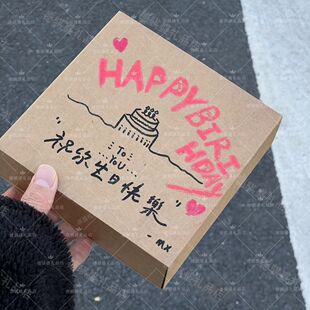 HAPPYBIRI
HDAY
To
YOU...
"祝你生日快樂"
- mx